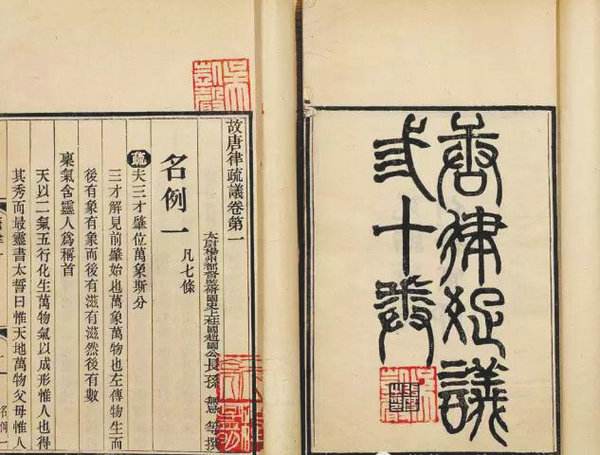 唐律疏議
弎十卷
吳
凱聲
故唐律疏議卷第一
太尉揚州都督監脩國史上柱國趙國公長孫無忌等撰
名例一 凡七條
疏夫三才肇位萬象斯分
三才解見前肇始也萬象萬物也左傳物生而
後有象有象而後有滋有滋然後有數
稟氣含靈人爲稱首
天以二氣五行化生萬物氣以成形惟人也得
其秀而最靈書太誓曰惟天地萬物父母惟人
名例一